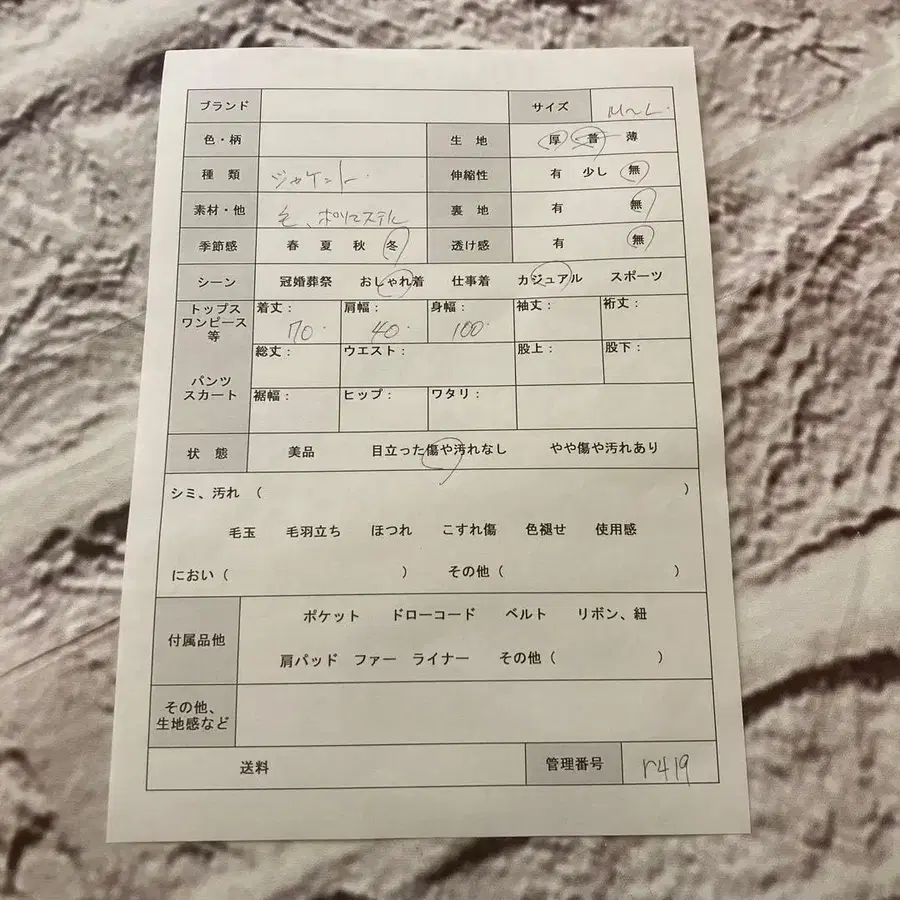 ブランド サイズ M～L
色・柄 生 地 厚 普 薄
種 類 ジャケット 伸縮性 有 少し 無
素材・他 毛、ポリエステル 裏 地 有 無
季節感 春 夏 秋 冬 透け感 有 無
シーン 冠婚葬祭 おしゃれ着 仕事着 カジュアル スポーツ
トップス
ワンピース
等
着丈： 肩幅： 身幅： 袖丈： 裄丈：
70 40 100
パンツ
スカート
総丈： ウエスト： 股上： 股下：
裾幅： ヒップ： ワタリ：
状 態 美品 目立った傷や汚れなし やや傷や汚れあり
シミ、汚れ （ ）
毛玉 毛羽立ち ほつれ こすれ傷 色褪せ 使用感
におい（ ） その他（ ）
付属品他
ポケット ドローコード ベルト リボン、紐
肩パッド ファー ライナー その他（ ）
その他、
生地感など
送料 管理番号 r419